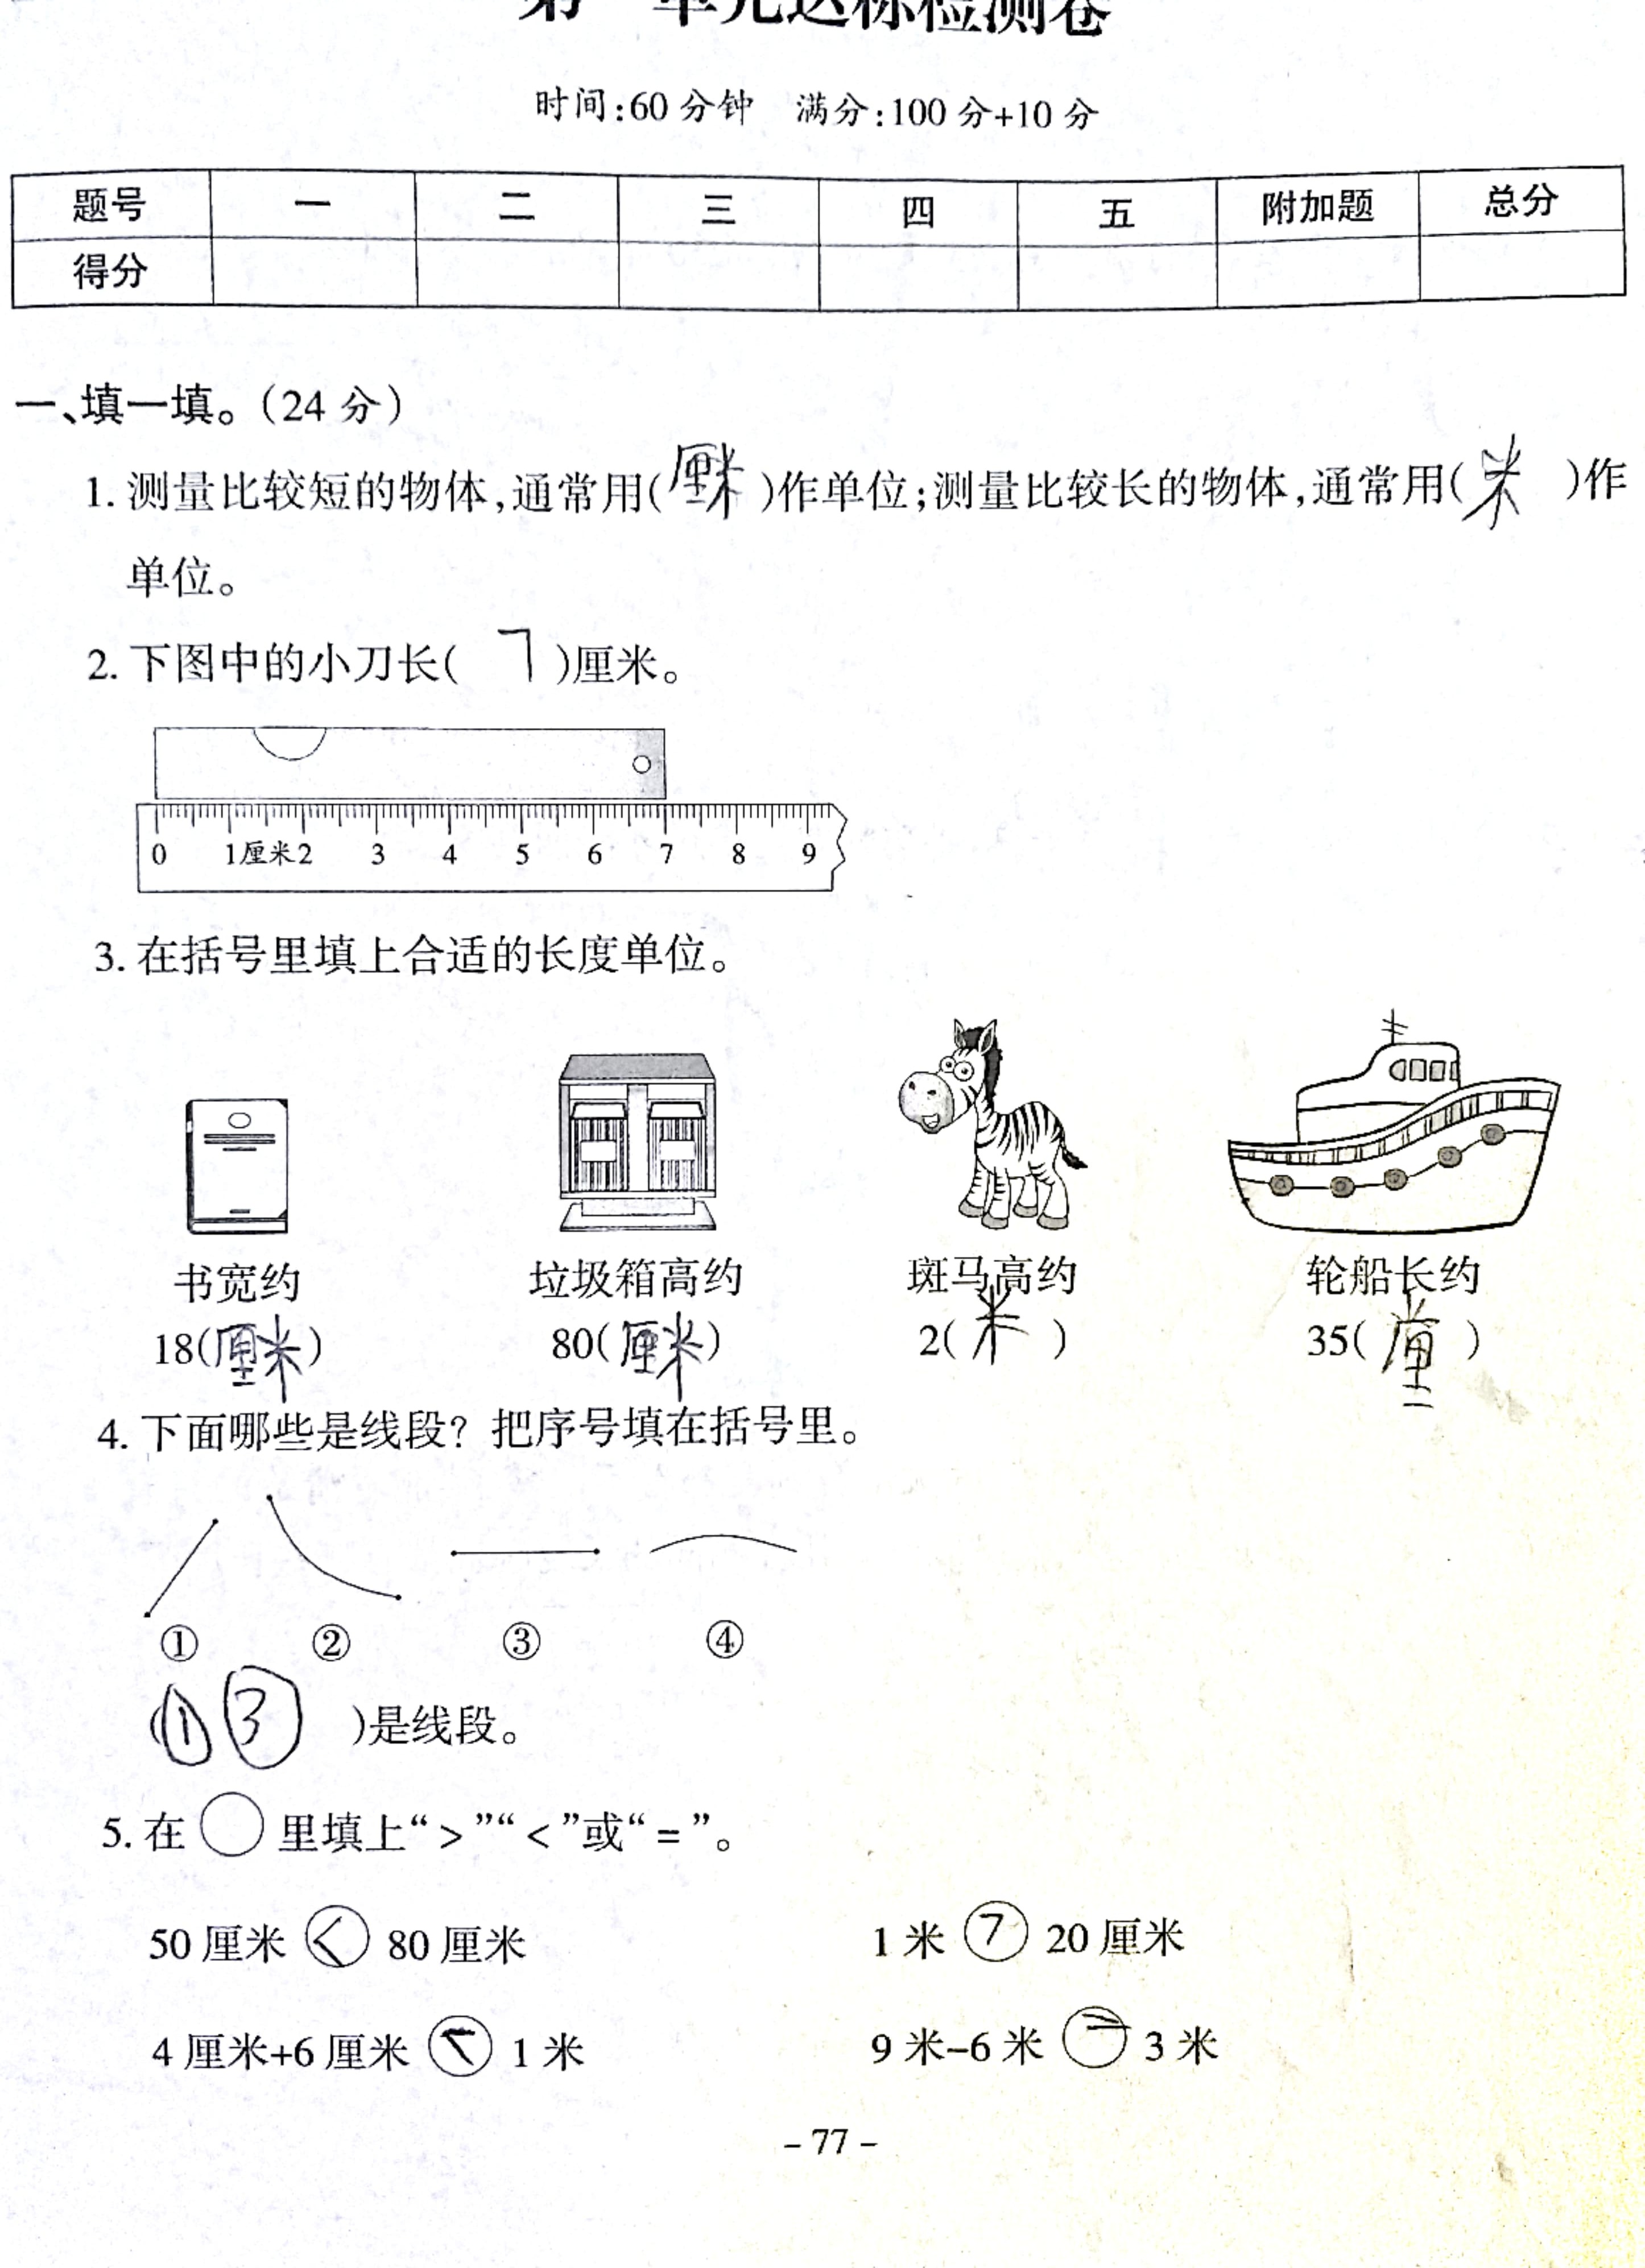 单元达标检测卷
时间:60分钟 满分:100分+10分
题号 一 二 三 四 五 附加题 总分
得分
一、填一填。(24分)
1. 测量比较短的物体,通常用(厘米)作单位;测量比较长的物体,通常用(米)作
单位。
2. 下图中的小刀长(7)厘米。
0 1厘米2 3 4 5 6 7 8 9
3. 在括号里填上合适的长度单位。
书宽约 垃圾箱高约 斑马高约 轮船长约
18(厘米) 80(厘米) 2(米) 35(厘)
4. 下面哪些是线段? 把序号填在括号里。
① ② ③ ④
(①③)是线段。
5. 在○里填上“>”“<”或“=”。
50厘米<80厘米 1米>20厘米
4厘米+6厘米<1米 9米-6米=3米
- 77 -